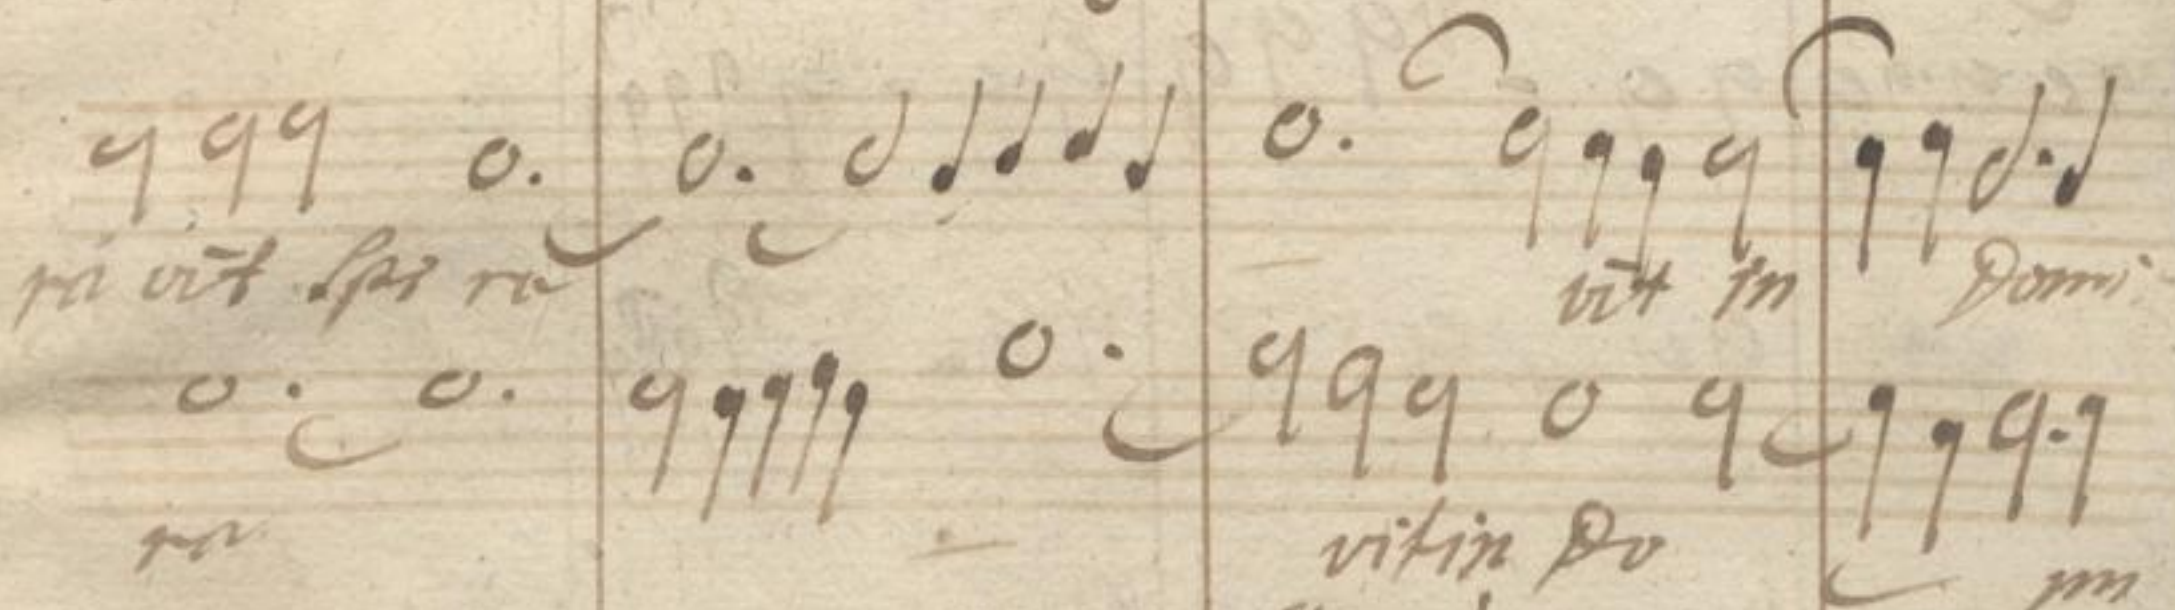 ra vit Spe ra
vit In Domi-
ra
vit in Do
mi